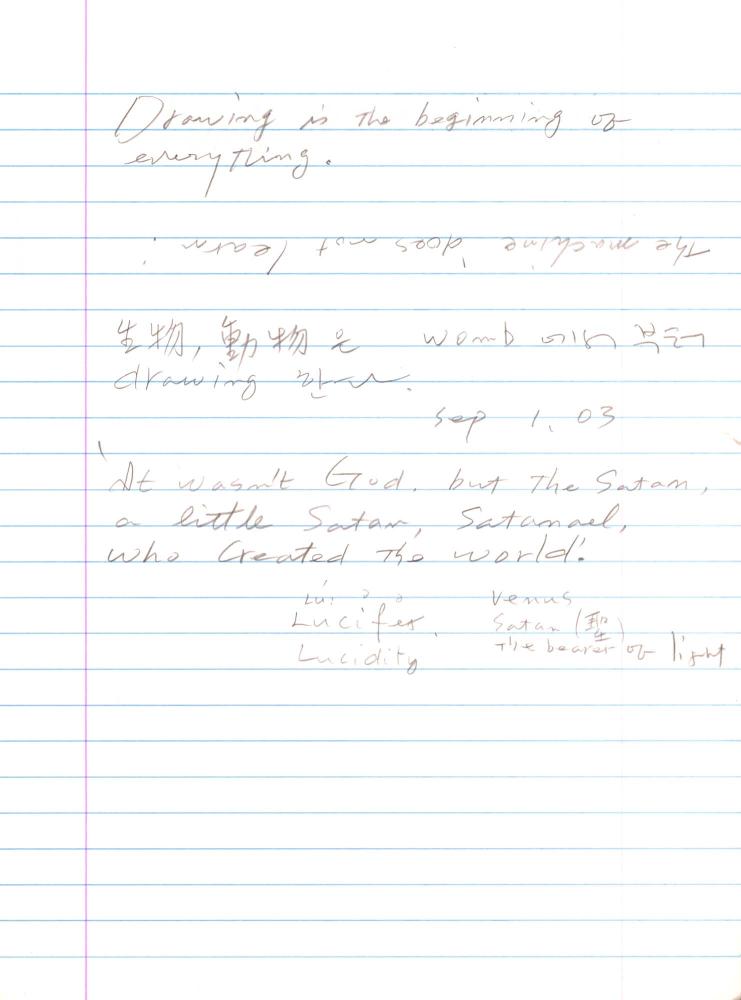 Drawing is the beginning of
everything.
The machine does not learn.
生物, 動物은 womb에서 부터
drawing 한다.
Sep 1. 03
It wasn't God. but The Satan,
a little Satan, Satanael,
who Created The world.
Lu:
Lucifer. Venus
Lucidity Satan (聖)
The bearer of light